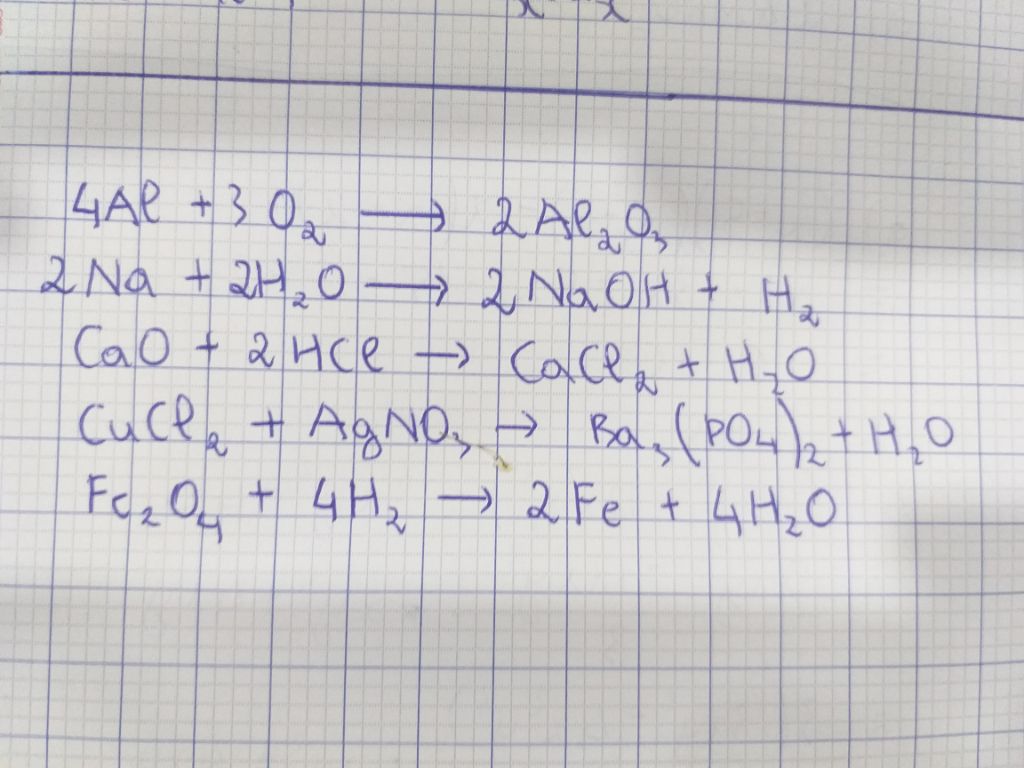 4Al + 3 O₂ ⟶ 2Al₂O₃
2Na + 2H₂O ⟶ 2NaOH + H₂
CaO + 2HCl → CaCl₂ + H₂O
CuCl₂ + AgNO₃ → Ba₃(PO₄)₂ + H₂O
Fe₂O₄ + 4H₂ → 2Fe + 4H₂O